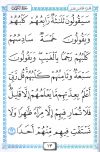 سَيَقُولُونَ ثَلَٰثَةٌ رَّابِعُهُمْ كَلْبُهُمْ
وَيَقُولُونَ خَمْسَةٌ سَادِسُهُمْ
كَلْبُهُمْ رَجْمًۢا بِٱلْغَيْبِ وَيَقُولُونَ
سَبْعَةٌ وَثَامِنُهُمْ كَلْبُهُمْ قُل رَّبِّىٓ
أَعْلَمُ بِعِدَّتِهِم مَّا يَعْلَمُهُمْ إِلَّا قَلِيلٌ
فَلَا تُمَارِ فِيهِمْ إِلَّا مِرَآءً ظَٰهِرًا وَلَا
تَسْتَفْتِ فِيهِم مِّنْهُمْ أَحَدًا
١٣